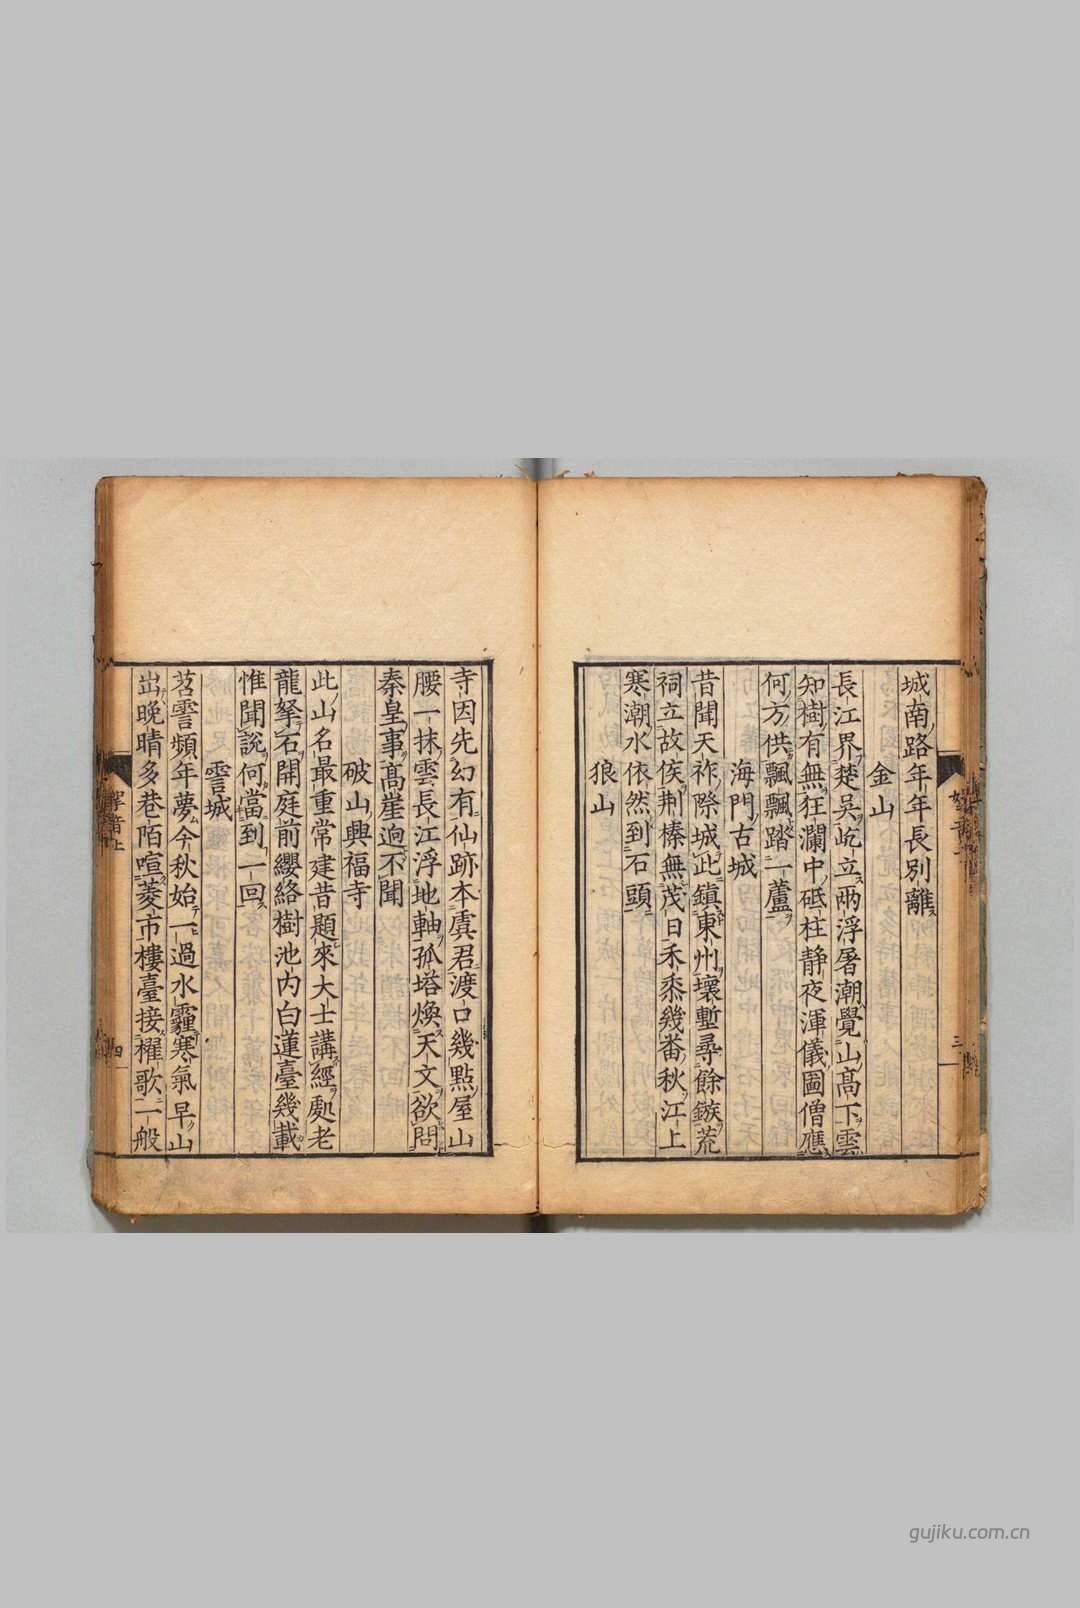 城南路年年長別離
金山
長江界楚吳屹立兩浮屠潮覺山髙下雲
知樹有無狂瀾中砥柱静夜渾儀圖僧應
何方供飄飄踏一蘆
海門古城
昔聞天祚際城此鎮東州壞塹尋餘鏃荒
祠立故侯荆榛無茂日禾黍幾番秋江上
寒潮水依然到石頭
狼山
三
寺因先幻有仙跡本虞君渡口幾點屋山
腰一抹雲長江浮地軸孤塔煥天文欲問
秦皇事髙崖逈不聞
破山興福寺
此山名最重常建昔題來大士講經處老
龍拏石開庭前纓絡樹池内白蓮臺幾載
惟聞說何當到一回
霅城
苕霅頻年夢今秋始一過水靃寒氣早山
出晚晴多巷陌喧菱市樓臺接櫂歌一般
四
gujiku.com.cn